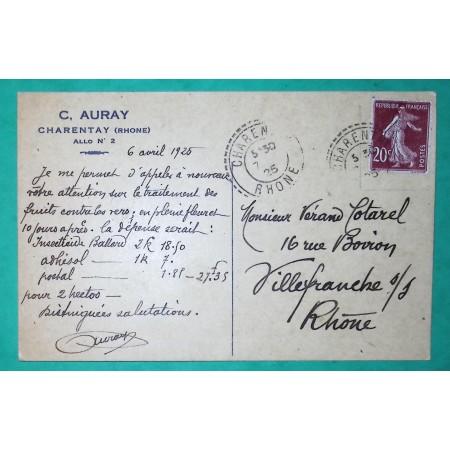 C. AURAY
CHARENTAY (RHONE)
ALLO N° 2
6 avril 1925
Je me permet d'appeler à nouveau
votre attention sur le traitement des
fruits contre les vers; en pleine fleur et
10 jours après. la dépense serait:
Insecticide Ballard 2k 18.50
adhésol — 1k 7.
postal — 1.85 — 27.35
pour 2 hectos —
Distinguées salutations.
Auray
CHAREN
5*30
25
RHONE
CHAREN
5
25
REPUBLIQUE FRANÇAISE
20c
POSTES
Monsieur Vérand Jotarel
16 rue Boiron
Villefranche s/s
Rhône